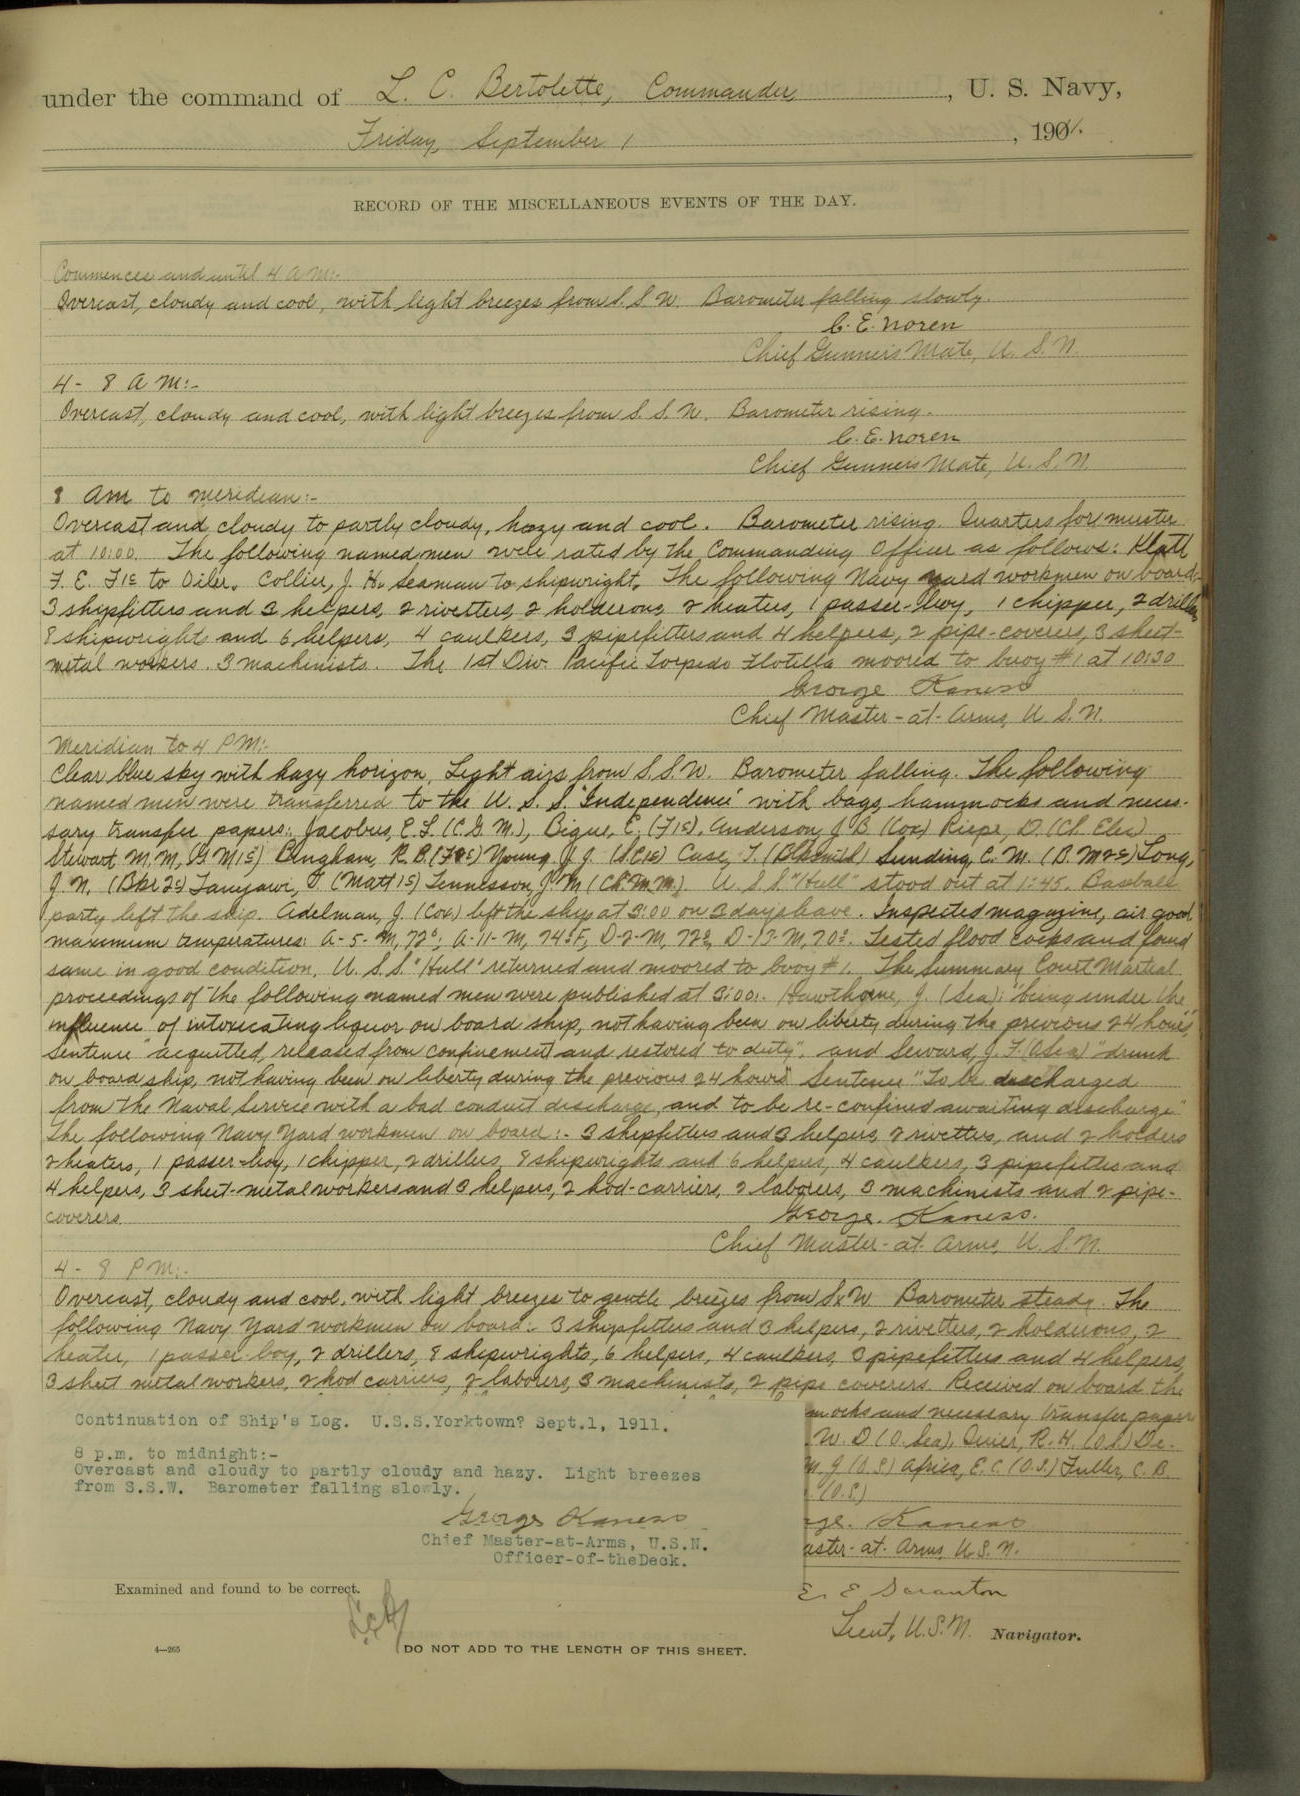 under the command of L. C. Bertolette, Commander, U. S. Navy,
Friday, September 1, 1901.
RECORD OF THE MISCELLANEOUS EVENTS OF THE DAY.
Commences and until 4 A M:-
Overcast, cloudy and cool, with light breezes from S. S W. Barometer falling slowly.
C. E. Noren
Chief Gunner's Mate, U. S. N.
4 - 8 A M:-
Overcast, cloudy and cool, with light breezes from S. S. W. Barometer rising.
C. E. Noren
Chief Gunner's Mate, U. S. N.
8 AM to meridian:-
Overcast and cloudy to partly cloudy, hazy and cool. Barometer rising. Quarters for muster
at 10:00. The following named men were rated by the Commanding Officer as follows: Klatt
F. E. F1c to Oiler. Collier, J. H. Seaman to shipwright. The following Navy yard workmen on board:-
3 shipfitters and 3 helpers, 2 rivetters, 2 holderons, 2 heaters, 1 passer-boy, 1 chipper, 2 drillers
8 shipwrights and 6 helpers, 4 caulkers, 3 pipefitters and 4 helpers, 2 pipe-coverers, 3 sheet-
metal workers. 3 machinists. The 1st Div. Pacific Torpedo Flotilla moored to buoy #1 at 10:30
George Kaness
Chief Master-at-Arms, U. S. N.
Meridian to 4 P M:-
Clear blue sky with hazy horizon, Light airs from S. S. W. Barometer falling. The following
named men were transferred to the U. S. S. "Independence" with bags, hammocks and neces-
sary transfer papers: Jacobus, E. L. (C. G. M.), Bigue, E. (F1c), Anderson, J B (Cox) Riepe, D. (Ch Elec)
Stewart M. M, (G M1c) Bingham, R. B. Young J. J. (S.C1c) Case, T. Lunding, C. M. (B. M2c) Long,
J. N. (Bkr 2c) (Matt 1c) Tennesson, J. M (Ch. M. M.). U. S. S. "Hull" stood out at 1:45. Baseball
party left the ship. Adelman, J. (Cox) left the ship at 3:00 on 3 days leave. Inspected magazine, air good,
maximum temperatures: A-5-M, 72°, A-11-M, 74°F, D-2-M, 72°, D-17-M, 70°. Tested flood cocks and found
same in good condition. U. S. S. "Hull" returned and moored to buoy #1. The Summary Court Martial
proceedings of the following named men were published at 3:00:- Hawthorne, J. (Sea): "being under the
influence of intoxicating liquor on board ship, not having been on liberty during the previous 24 hours",
Sentence "acquitted, released from confinement and restored to duty", and Seward, J. F. (OSea) "drunk
on board ship, not having been on liberty during the previous 24 hours" Sentence "To be discharged
from the Naval Service with a bad conduct discharge, and to be re-confined awaiting discharge"
The following Navy Yard workmen on board:- 3 shipfitters and 3 helpers, 2 rivetters, and 2 holders
2 heaters, 1 passer-boy, 1 chipper, 2 drillers, 8 shipwrights and 6 helpers, 4 caulkers, 3 pipefitters and
4 helpers, 3 sheet-metal workers and 3 helpers, 2 hod-carriers, 2 laborers, 3 machinists and 2 pipe-
coverers.
George Kaness.
Chief Master-at-Arms, U. S. N.
4 - 8 P M:-
Overcast, cloudy and cool, with light breezes to gentle breezes from SxW Barometer steady. The
following Navy Yard workmen on board:- 3 shipfitters and 3 helpers, 2 rivetters, 2 holderons, 2
heater, 1 passer-boy, 2 drillers, 8 shipwrights, 6 helpers, 4 caulkers, 3 pipefitters and 4 helpers,
3 sheet metal workers, 2 hod carriers, 2 laborers, 3 machinists, 2 pipe coverers. Received on board the
mocks and necessary transfer paper
. W. D (O. Sea), R. H. (O.S.) De-
M. J (O.S.) Africa, E. C. (O.S.) Fuller, C. B.
. (O.S.)
rge. Kaness
aster-at-Arms, U. S. N.
Continuation of Ship's Log. U.S.S.Yorktown? Sept.1, 1911.
8 p.m. to midnight:-
Overcast and cloudy to partly cloudy and hazy. Light breezes
from S.S.W. Barometer falling slowly.
George Kaness
Chief Master-at-Arms, U.S.N.
Officer-of-theDeck.
Examined and found to be correct.
E. E Scranton
Lieut, U.S.N. Navigator.
4—265
DO NOT ADD TO THE LENGTH OF THIS SHEET.